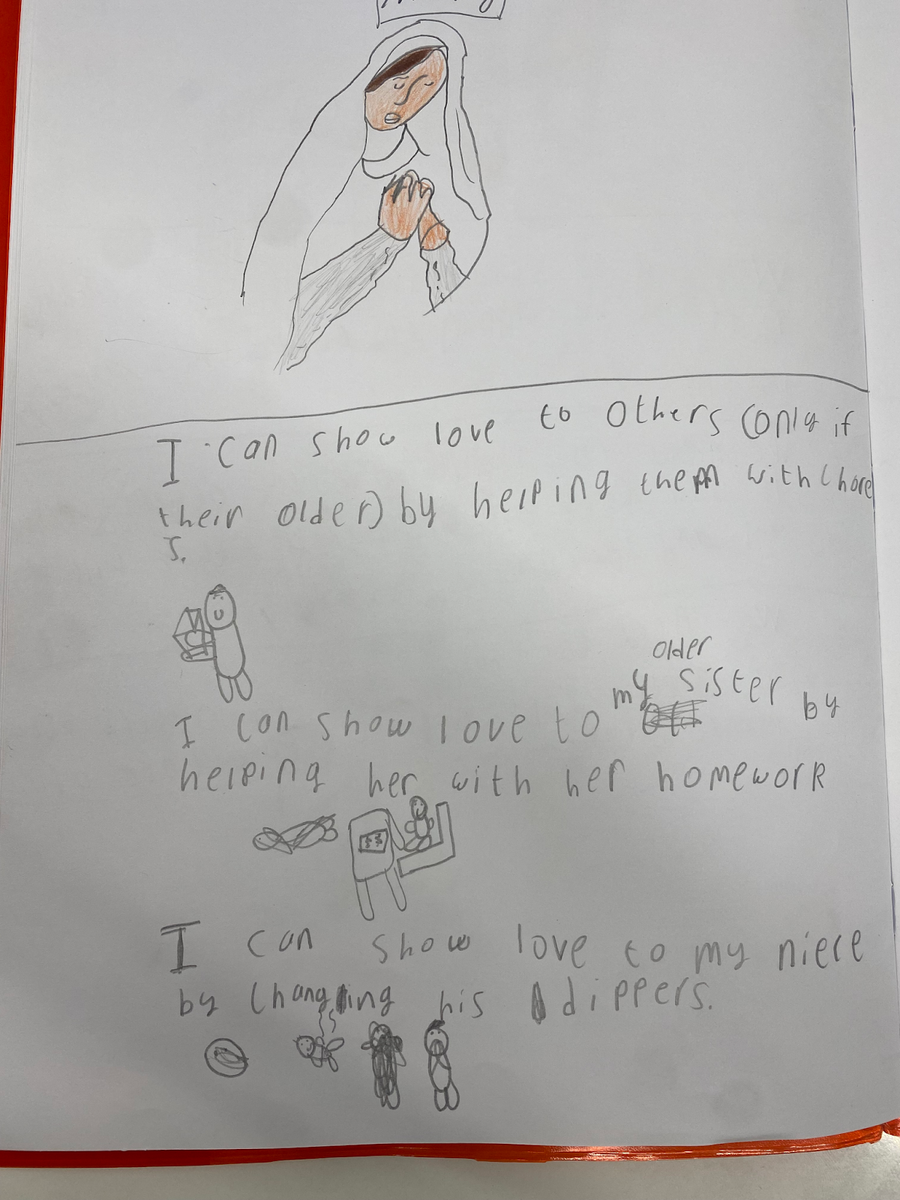 I can show love to others (only if
their older) by helping them with chore
s.
older
I can show love to my sister by
helping her with her homework
I can show love to my niece
by changing his dippers.